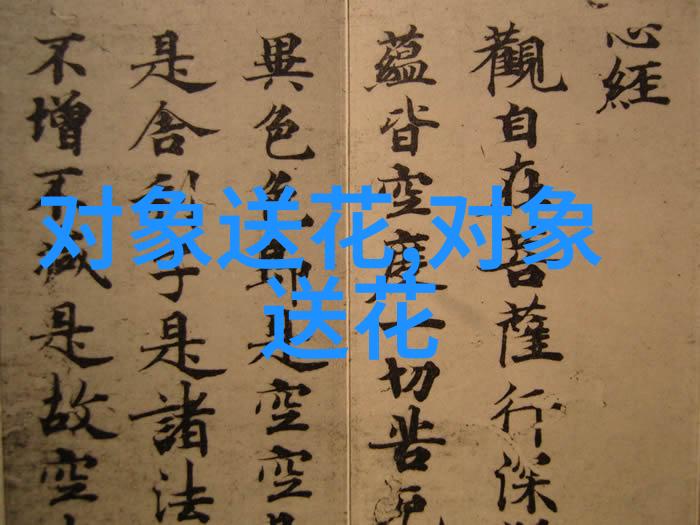 心經
觀自在菩薩行深
蘊皆空度一切苦厄
異色色即是空空
是舍利子是諸法
不增不減是故空
对象送花,对象
送花